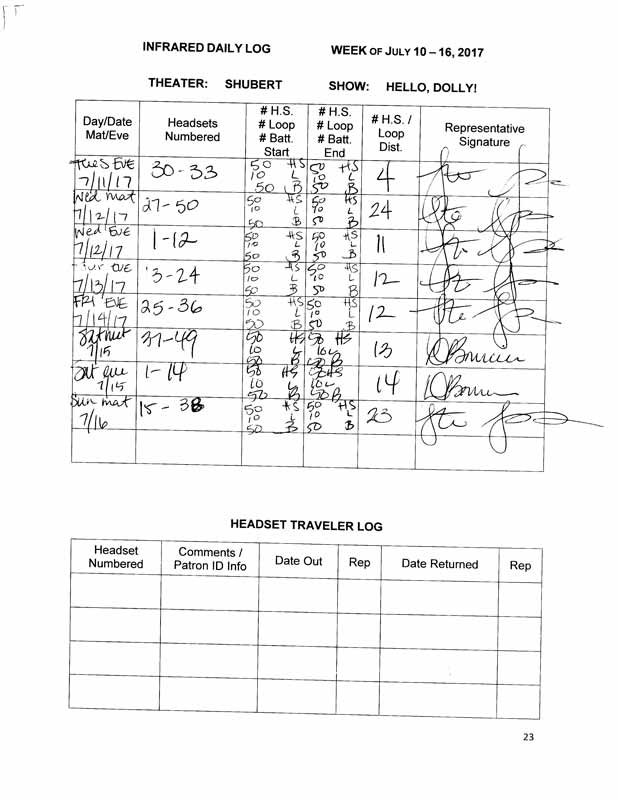 INFRARED DAILY LOG WEEK OF JULY 10 – 16, 2017
THEATER: SHUBERT SHOW: HELLO, DOLLY!
Day/Date Mat/Eve Headsets Numbered # H.S. # Loop # Batt. Start # H.S. # Loop # Batt. End # H.S. / Loop Dist. Representative Signature
Tues EVE 7/11/17 30-33 50 HS 10 L 50 B 50 HS 10 L 50 B 4
Wed mat 7/12/17 27-50 50 HS 10 L 50 B 50 HS 10 L 50 B 24
Wed EVE 7/12/17 1-12 50 HS 10 L 50 B 50 HS 10 L 50 B 11
EVE 7/13/17 13-24 50 HS 10 L 50 B 50 HS 10 L 50 B 12
FRI EVE 7/14/17 25-36 50 HS 10 L 50 B 50 HS 10 L 50 B 12
Sat mat 7/15 37-49 50 HS 10 L 50 B 50 HS 10 L 50 B 13
Sat eve 7/15 1-14 50 HS 10 L 50 B 50 HS 10 L 50 B 14
Sun mat 7/16 15-38 50 HS 10 L 50 B 50 HS 10 L 50 B 23
HEADSET TRAVELER LOG
Headset Numbered Comments / Patron ID Info Date Out Rep Date Returned Rep
23